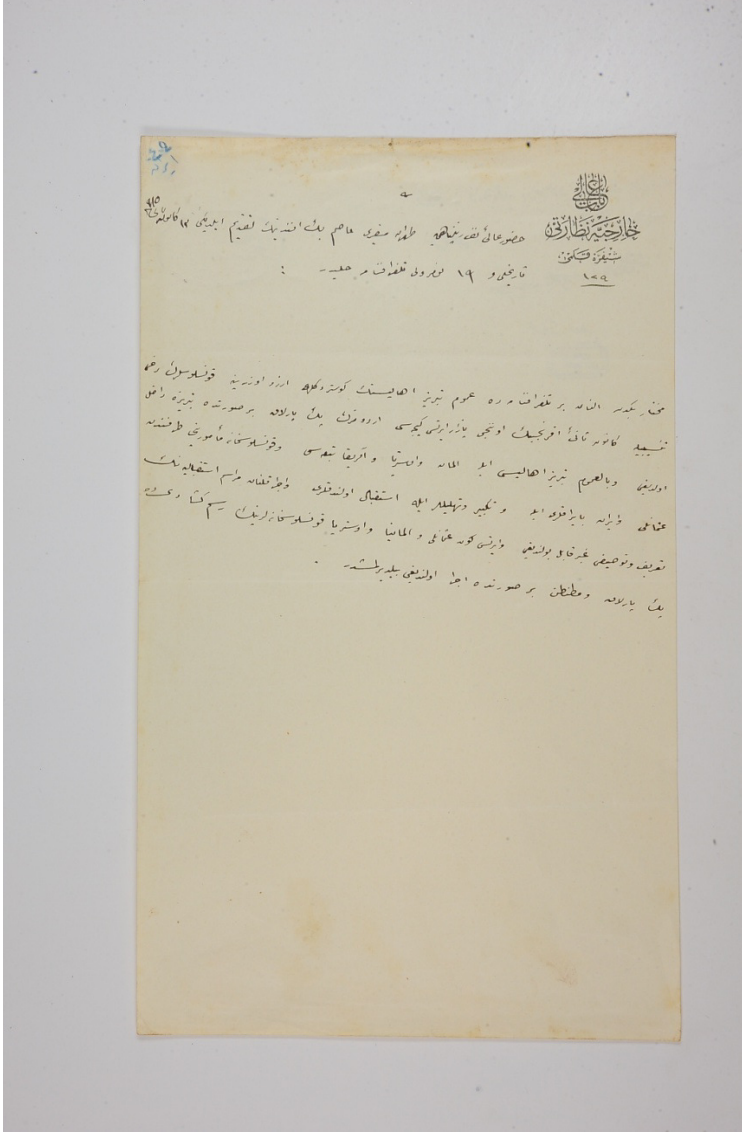 باب عالی
خارجیه نظارتی
شیفره قلمی
١٢٩
حضور عالئ نظارتپناهی‌یه طهران سفیری عاصم بك افندینك تقدیم ایلدیكی ١٢ كانون ثانی ٩١٥
تاریخلی و ١٩ نومرولی تلغرافنامه حلیدر :
مختار بكدن آلنان بر تلغرافنامه‌ده عموم تبریز اهالیسنك كوستردكلری آرزو اوزرینه قونسلوسلرك
كانون ثانئ افرنجینك اوننجی پازارایرتسی كیجه‌سی اردومزك پك پارلاق بر صورتده تبریزه داخل
اولدیغی وبالعموم تبریز اهالیسی ایله آلمان واوستریا و آمریقا تبعه‌سی وقونسلوسخانه مأمورلری طرفندن
عثمانلی وایران بایراقلری ایله و تكبیر وتهلیللر ایله استقبال اولندقلری واجرا قلنان مراسم استقبالیه‌نك
تعریف وتوصیفی غیر قابل بولندیغی وایرتسی كون عثمانلی و آلمانیا واوستریا قونسلوسخانه‌لرینك رسم كشادی‌ده
پك پارلاق ومطنطن بر صورتده اجرا اولندیغی بیلدیرلمشدر .